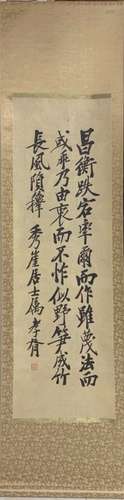 昌衡跌宕率爾而作雖蔑法而
或乖乃由衷而不怍似野筍成竹
長風隕籜 秀崖居士屬 孝胥